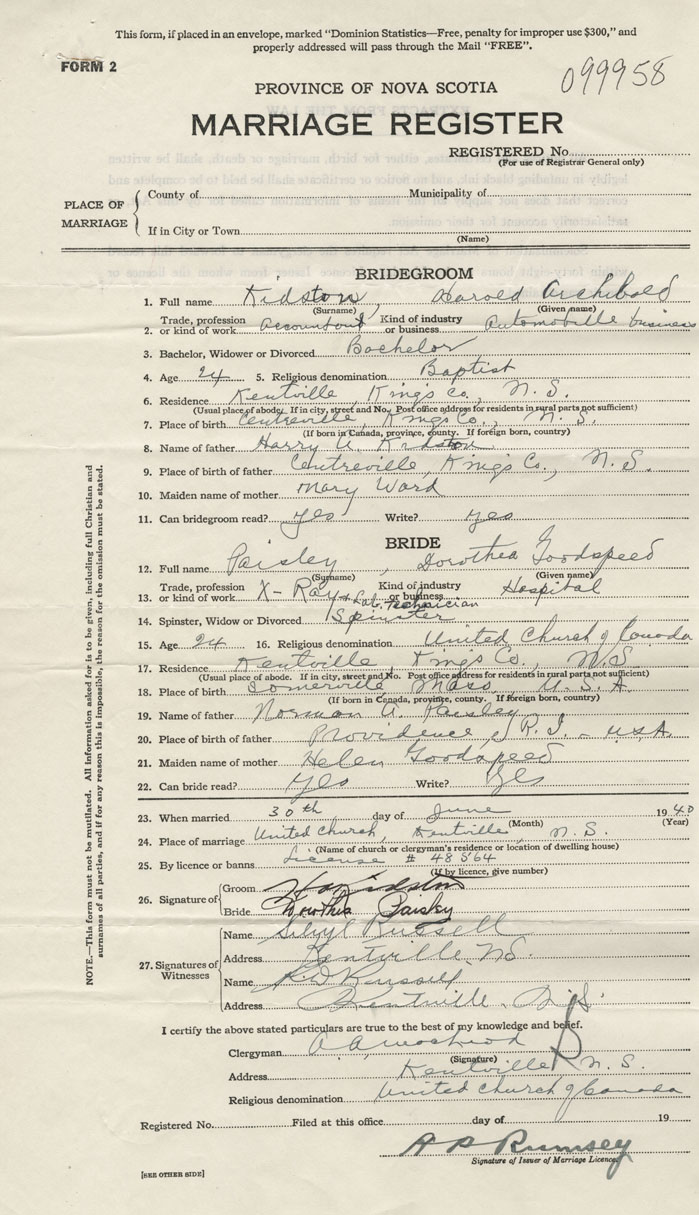 This form, if placed in an envelope, marked "Dominion Statistics—Free, penalty for improper use $300," and
properly addressed will pass through the Mail "FREE".
FORM 2
099958
PROVINCE OF NOVA SCOTIA
MARRIAGE REGISTER
REGISTERED No.
(For use of Registrar General only)
PLACE OF MARRIAGE
County of Municipality of
If in City or Town
(Name)
BRIDEGROOM
1. Full name Kidston, Harold Archibald
(Surname) (Given name)
2. Trade, profession or kind of work Accountant Kind of industry or business Automobile business
3. Bachelor, Widower or Divorced Bachelor
4. Age 24 5. Religious denomination Baptist
6. Residence Kentville, Kings Co., N.S.
(Usual place of abode. If in city, street and No. Post office address for residents in rural parts not sufficient)
7. Place of birth Centreville, Kings Co., N.S.
(If born in Canada, province, county. If foreign born, country)
8. Name of father Harry A. Kidston
9. Place of birth of father Centreville, Kings Co., N.S.
10. Maiden name of mother Mary Ward
11. Can bridegroom read? yes Write? yes
BRIDE
12. Full name Paisley, Dorothea Goodspeed
(Surname) (Given name)
13. Trade, profession or kind of work X-Ray & Lab. Technician Kind of industry or business Hospital
14. Spinster, Widow or Divorced Spinster
15. Age 24 16. Religious denomination United Church of Canada
17. Residence Kentville Kings Co., N.S.
(Usual place of abode. If in city, street and No. Post office address for residents in rural parts not sufficient)
18. Place of birth Somerville Mass. U.S.A.
(If born in Canada, province, county. If foreign born, country)
19. Name of father Norman A. Paisley
20. Place of birth of father Providence, R.I. - USA.
21. Maiden name of mother Helen Goodspeed
22. Can bride read? yes Write? yes
23. When married 30th day of June 1940
(Month) (Year)
24. Place of marriage United Church, Kentville, N.S.
(Name of church or clergyman's residence or location of dwelling house)
25. By licence or banns License # 48564
(If by licence, give number)
26. Signature of
Groom Kidston
Bride Paisley
27. Signatures of Witnesses
Name Sibyl Russell
Address Kentville NS.
Name Russell
Address Kentville, N.S.
I certify the above stated particulars are true to the best of my knowledge and belief.
Clergyman
(Signature)
Address Kentville, N.S.
Religious denomination United Church of Canada
Registered No. Filed at this office day of 19
A P Rumsey
Signature of Issuer of Marriage Licence
[SEE OTHER SIDE]
NOTE.—This form must not be mutilated. All information asked for is to be given, including full Christian and
surnames of all parties, and if for any reason this is impossible, the reason for the omission must be stated.